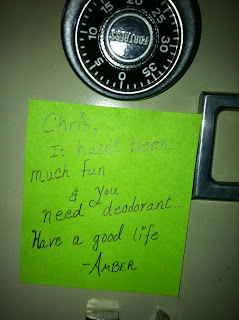 25
20
30
15
35
10
5
0
Chris,
It hasn't been
much fun
& you
need deodorant...
Have a good life
-AMBER